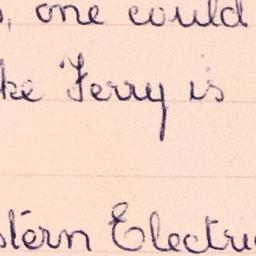 , one could
ke Ferry is
stern Electri